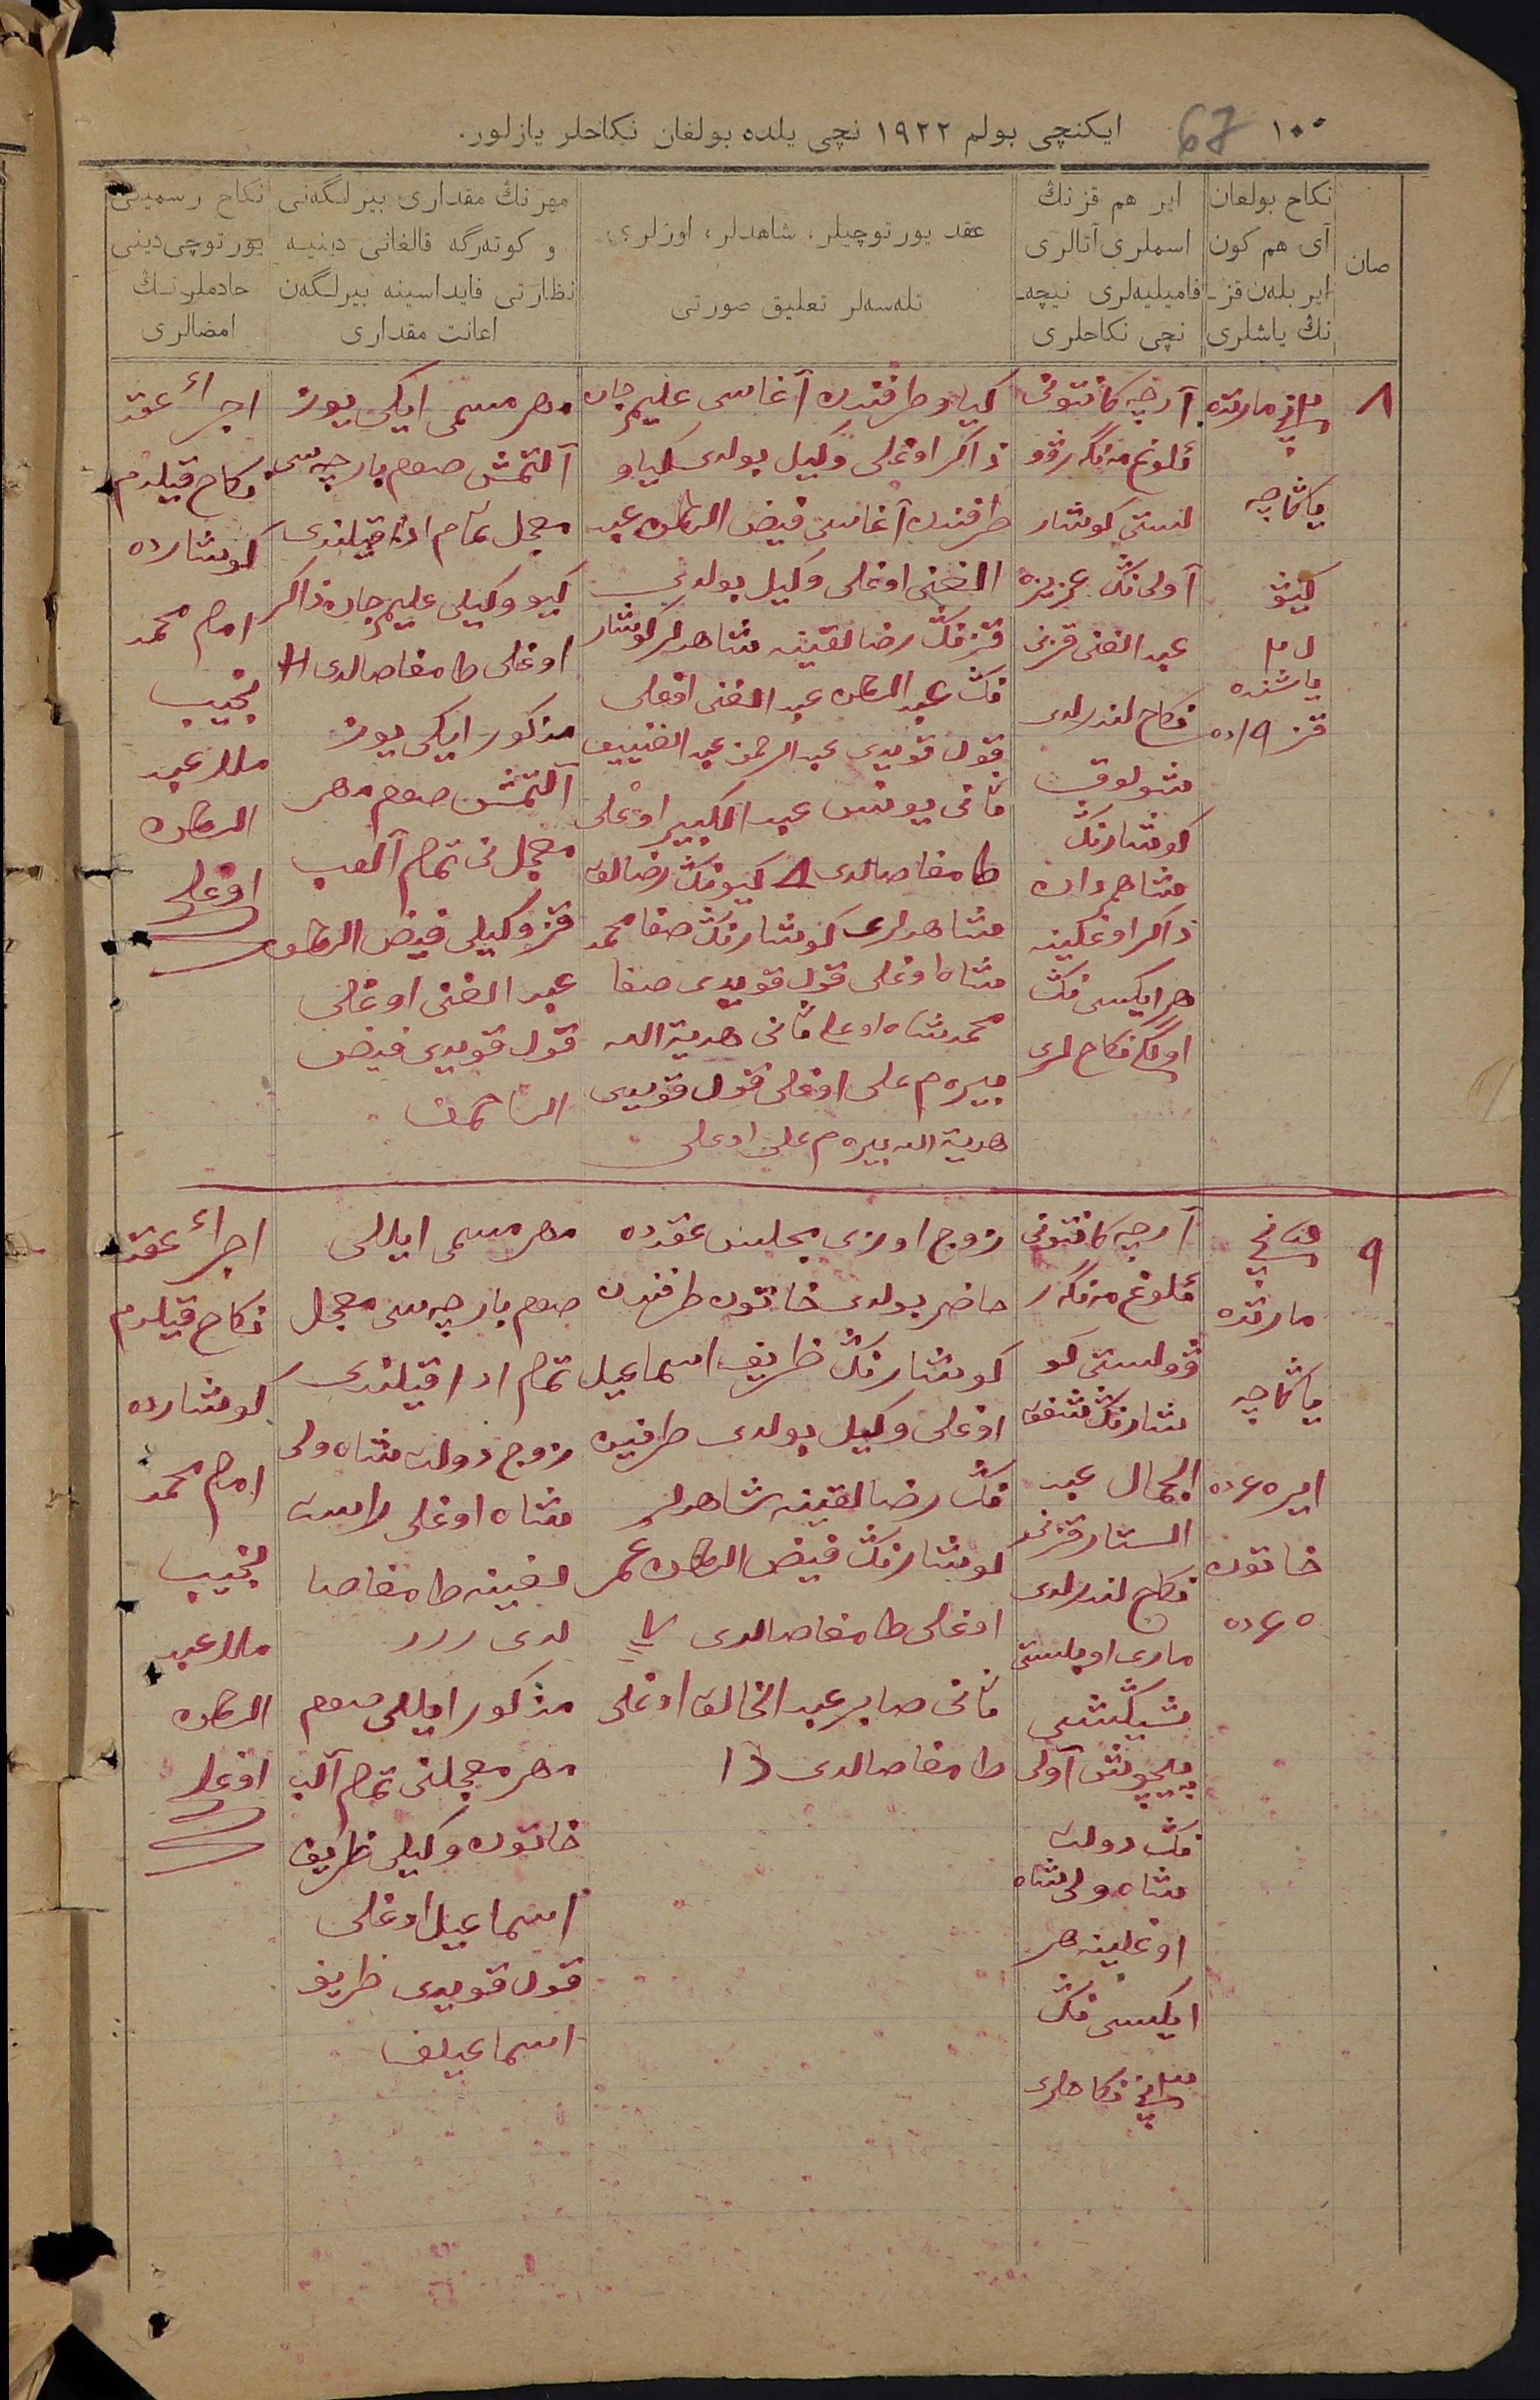 ١٠٠ 67 ایکنچی بولم ١٩٢٢ نچی یلده بولغان نکاحلر یازلور.
صان
نکاح بولغان
آی هم کون
ایر بلەن قز-
نڭ یاشلری
ایر هم قزنڭ
اسملری آتالری
فامیلیەلری نیچە-
نچی نکاحلری
عقد یورتوچیلر، شاهدلر، اوزلری
تلەسەلر تعلیق صورتی
مهرنڭ مقداری بیرلگەنی
و کوتەرگە قالغانی دینیە
نظارتی فایداسینە بیرلگەن
اعانت مقداری
نکاح رسمینی
یورتوچی دینی
خادملرنڭ
امضالری
٨
مارتده
یاڭاچه
کیو
یاشنده
قز ١٩ده
آرچه کانتونی
اولوغ مەنگەر
نستی کوشار
آولی نڭ عزیزه
عبد الغنی قزنی
نکاح لندرلدی
شولوق
کوشارنڭ
ذاکر اوغلینه
هر ایکیسی نڭ
اولگی نکاح لری
کیاو طرفندن آغاسی علیم جان
ذاکر اوغلی وکیل بولدی کیاو
طرفندن آغاسی فیض الرحمن عبد
الغنی اوغلی وکیل بولدی
قزنڭ رضالقینه شاهدلر کوشار
نڭ عبد الرحمن عبد الغنی اوغلی
قول قویدی عبد الرحمن عبد الغنییف
ثانی یونس عبد الکبیر اوغلی
طامغا صالدی کیونڭ رضالق
شاهدلری کوشارنڭ صفا محمد
شاه اوغلی قول قویدی صفا
محمدشاه اوغلی ثانی هدیة الله
بیرم علی اوغلی قول قویدی
هدیة الله بیرم علی اوغلی
مهر مسمی ایکی یوز
آلتمش صوم بارچەسی
معجل تمام ادا قیلندی
کیو وکیلی علیم جان ذاکر
اوغلی طامغا صالدی H
مذکور ایکی یوز
آلتمش صوم مهر
معجل نی تمام آلب
قز وکیلی فیض الرحمن
عبد الغنی اوغلی
قول قویدی فیض
الرحمن
اجراء عقد
نکاح قیلدم
کوشارده
امام محمد
نجیب
ملا عبد
الرحمن
اوغلی
٩
مارتده
یاڭاچه
ایر ٤٥ ده
خاتون
٤٥ ده
آرچه کانتونی
اولوغ مەنگەر
وولستی کو
شارنڭ شفق
الجمال عبد
الستار قزنی
نکاح لندرلدی
ماری اوبلستی
آولی
نڭ دولت
شاه ولی شاه
اوغلینه هر
ایکیسی نڭ
نکاحلری
زوج اوزی مجلس عقدده
حاضر بولدی خاتون طرفندن
کوشارنڭ ظریف اسماعیل
اوغلی وکیل بولدی طرفین
نڭ رضالقینه شاهدلر
کوشارنڭ فیض الرحمن عمر
اوغلی طامغا صالدی
ثانی صابر عبد الخالق اوغلی
طامغا صالدی
مهر مسمی ایللی
صوم بارچەسی معجل
تمام ادا قیلندی
زوج دولت شاه ولی
شاه اوغلی راست
لغینه طامغا صا
لدی
مذکور ایللی صوم
مهر معجلنی تمام آلب
خاتون وکیلی ظریف
اسماعیل اوغلی
قول قویدی ظریف
اسماعیلف
اجراء عقد
نکاح قیلدم
کوشارده
امام محمد
نجیب
ملا عبد
الرحمن
اوغلی